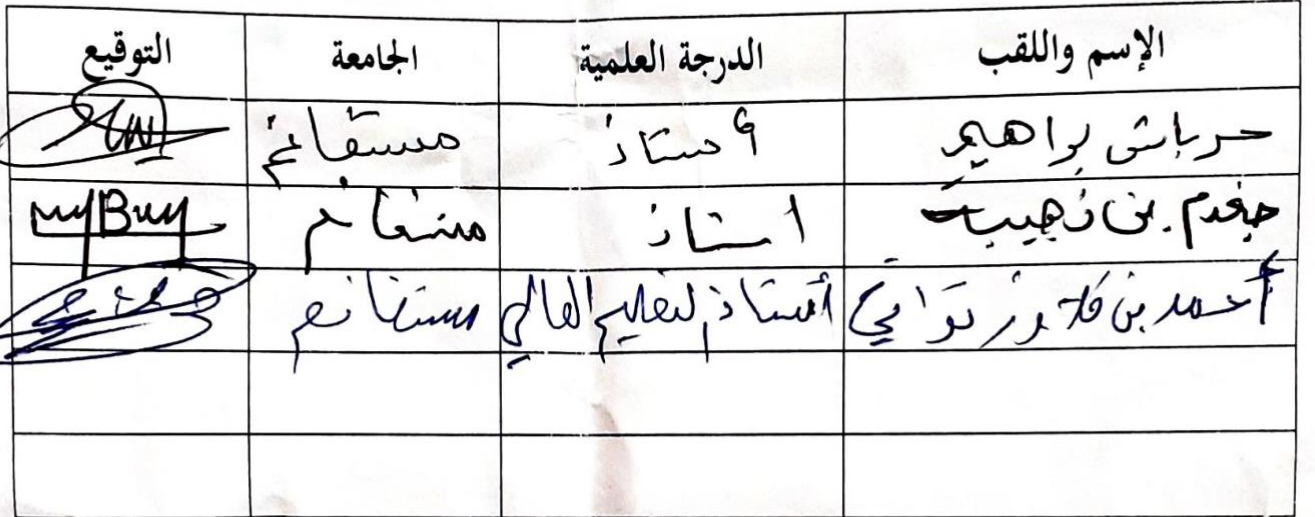 الإسم واللقب الدرجة العلمية الجامعة التوقيع
حرباش براهيم أستاذ مستغانم
جغدم بن ذهيبة استاذ مستغانم
أحمد بن قلاوز تواتي أستاذ لتعليم العالي مستغانم